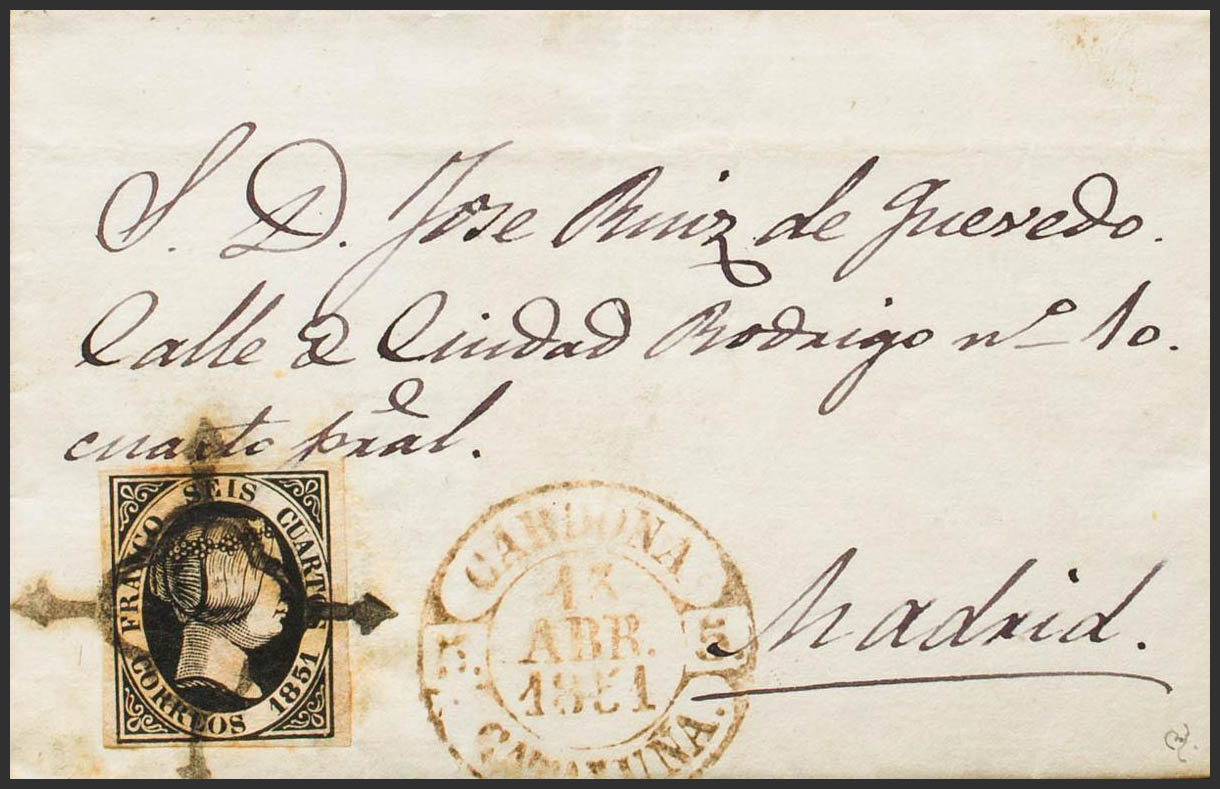 S. D. Jose Ruiz de Quevedo.
Calle de Ciudad Rodrigo nº 10.
cuarto pral.
FRANCO SEIS CUARTOS
CORREOS 1851
CARDONA
13
ABR.
1851
5 5
CATALUÑA.
Madrid.